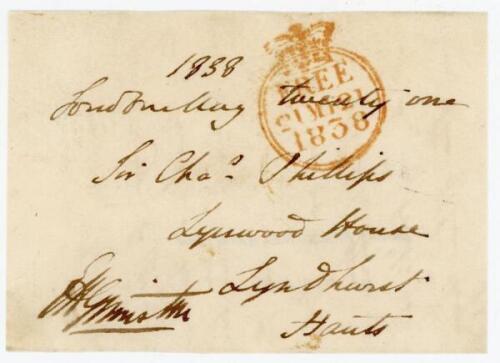 1838
London May twenty one
Sir Chas. Phillips
Lynwood House
Lyndhurst
Hants
FREE
21 MY 21
1838